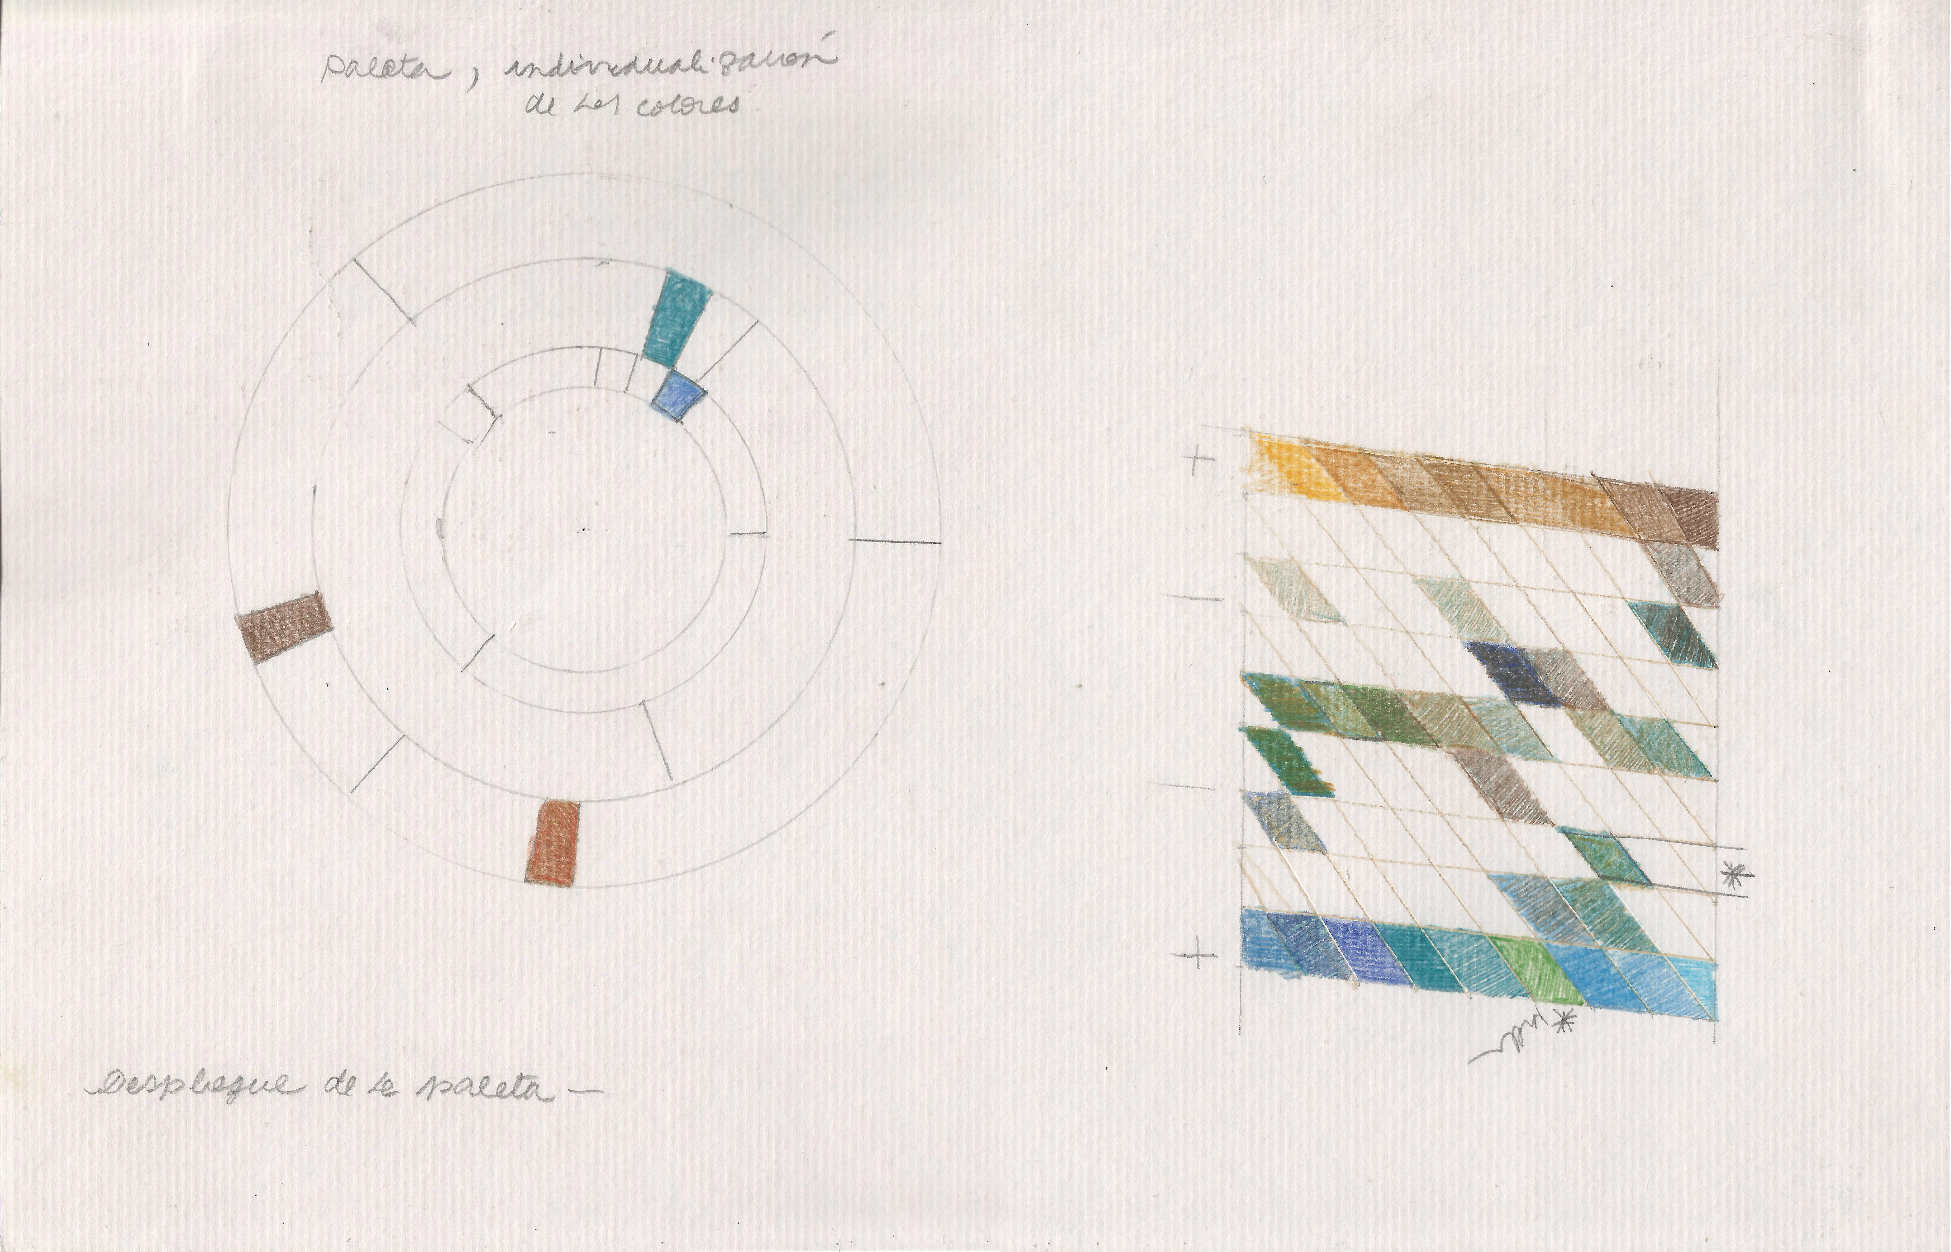 paleta, individualización
de los colores
Despliegue de la paleta —